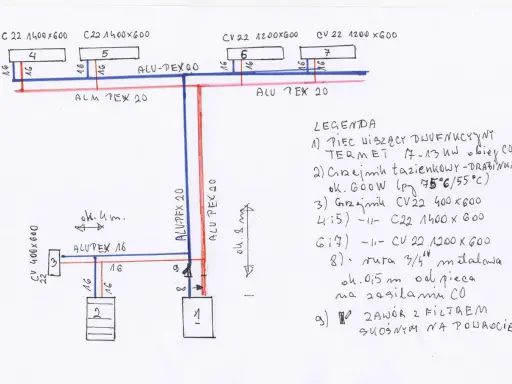 C 22 1400x600
C22 1400x600
CV 22 1200x600
CV 22 1200 x600
4
5
6
7
16
16
16
16
16
16
16
16
ALU-PEX 20
ALU PEX 20
ALU PEX 20
ALU-PEX 20
ALU PEX 20
ok. 8 mg
ok. 4m.
ALUPEX 16
16
CV 400x600
22
3
16
16
2
9
8
1
LEGENDA
1) PIEC WISZĄCY DWUFUNKCYJNY
TERMET 7-13 KW obieg CO
2) Grzejnik łazienkowy-DRABINKA
ok. 600W (py 75°C/55°C)
3) Grzejnik CV22 400x600
4 i 5) -11- C22 1400 x 600
6 i 7) -11- CV 22 1200x600
8). rura 3/4" metalowa
ok. 0,5 m od pieca
na zasilaniu CO
9) ZAWÓR Z FILTREM
SKOŚNYM NA POWROCIE